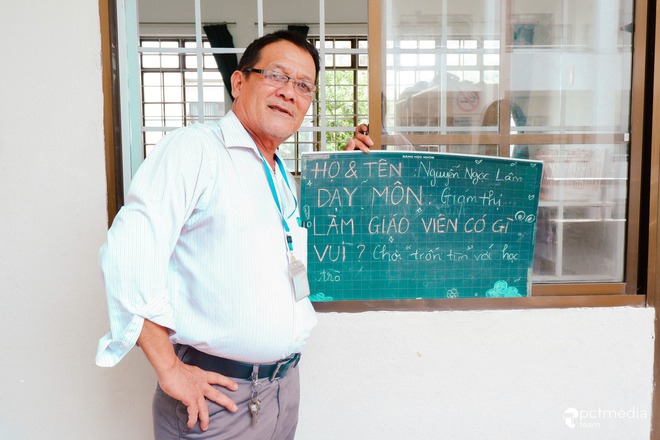 BẢNG HỌC NHÓM
HỌ & TÊN : Nguyễn Ngọc Lâm
DẠY MÔN : Giám thị
LÀM GIÁO VIÊN CÓ GÌ
VUI ? Chơi trốn tìm với học
trò
pctmedia
team